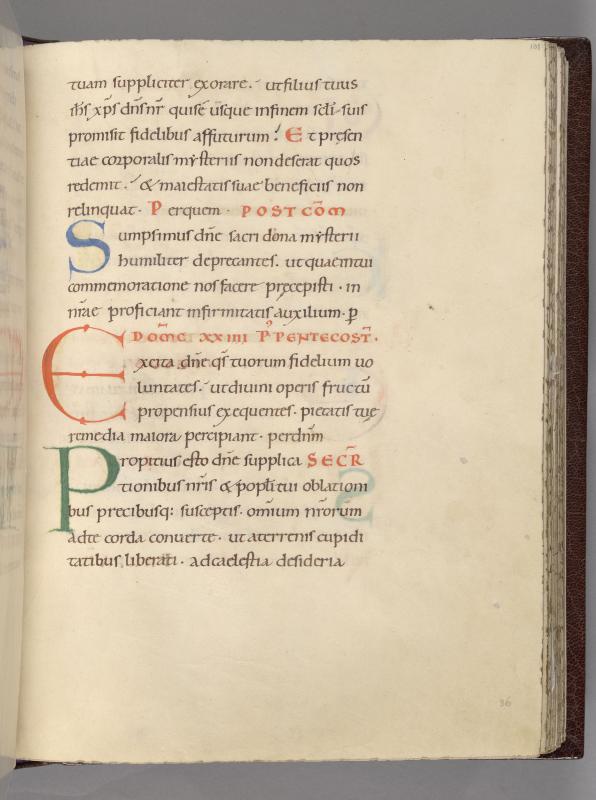 tuam suppliciter exorare. ut filius tuus
ih̄s xp̄s dn̄s nr̄ qui se usque in finem scl̄i suis
promisit fidelibus affuturum. Et pręsen
tiae corporalis mẏsteriis non deserat quos
redemit. & maiestatis suae beneficiis non
relinquat. Per quem. POST COM̄
Sumpsimus dn̄e sacri dona mẏsterii
humiliter deprecantes. ut quae in tui
commemoratione nos facere pręcepisti. in
nr̄ae proficiant infirmitatis auxilium. p̱
DOM̄C XXIIII P' PENTECOST̄.
Excita dn̄e qs̄ tuorum fidelium uo
luntates. ut diuini operis fructū
propensius exequentes. pietatis tuę
remedia maiora percipiant. per dn̄m
Propitius esto dn̄e supplica SECR̄
tionibus nr̄is & popli tui oblationi
bus precibusq: susceptis. omnium nr̄orum
ad te corda conuerte. ut a terrenis cupidi
tatibus liberati. ad caelestia desideria
36